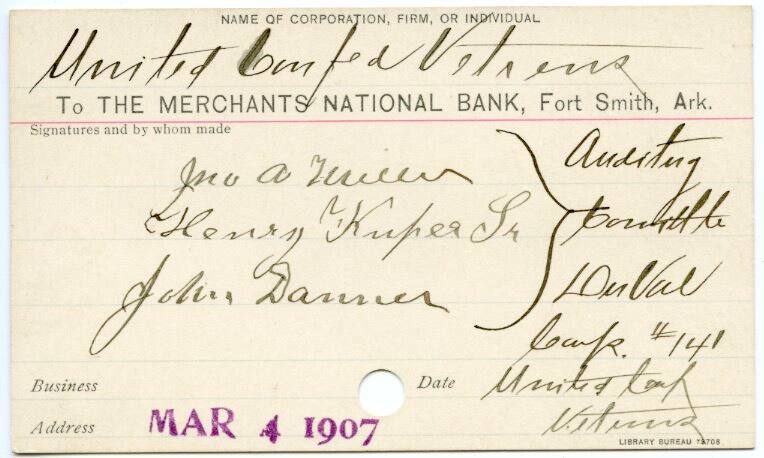 NAME OF CORPORATION, FIRM, OR INDIVIDUAL
United Confed Vetrens
To THE MERCHANTS NATIONAL BANK, Fort Smith, Ark.
Signatures and by whom made
Jno A Miller
Henry Kuper Sr
John Danner
Auditing
Committe
DuVal
Camp. #141
United Conf
Vetrens
Business
Date
Address
MAR 4 1907
LIBRARY BUREAU 72708